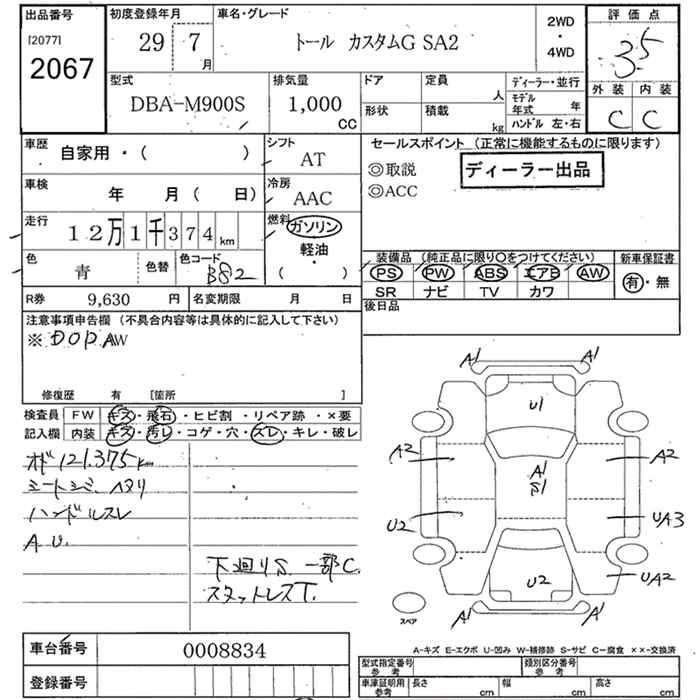 出品番号
[2077]
2067
初度登録年月
29 7月
車名・グレード
トール カスタムG SA2
2WD
・
4WD
評価点
3.5
外装 内装
C C
型式
DBA-M900S
排気量
1,000
CC
ドア
定員
人
形状
積載
kg
ディーラー・並行
モデル
年式 年
ハンドル 左・右
車歴
自家用・( )
シフト
AT
車検
年 月( 日)
冷房
AAC
走行
12万1千374km
燃料
ガソリン
軽油
・
( )
色
青
色替
色コード
B82
R券 9,630 円
名変期限 月 日
セールスポイント(正常に機能するものに限ります)
◎取説
◎ACC
ディーラー出品
装備品(純正品に限り〇をつけてください)
PS PW ABS エアB AW
SR ナビ TV カワ
新車保証書
有・無
後日品
注意事項申告欄(不具合内容等は具体的に記入して下さい)
※DOPAW
修復歴 有 [箇所 ]
検査員
記入欄
FW キズ・飛石・ヒビ割・リペア跡・×要
内装 キズ・汚レ・コゲ・穴・スレ・キレ・破レ
オド121.375km
シートシミ、ヘタリ
ハンドルスレ
A.U.
下廻りS 一部C.
スタットレスT.
A1 A1
U1
A2 A2
A1
S1
U2 UA3
U2 UA2
A1 A1
スペア
A-キズ E-エクボ U-凹み W-補修跡 S-サビ C-腐食 ××-交換済
車台番号 0008834
登録番号
型式指定番号
参考
類別区分番号
参考
車津証明用
参考
長さ cm 幅 cm 高さ cm